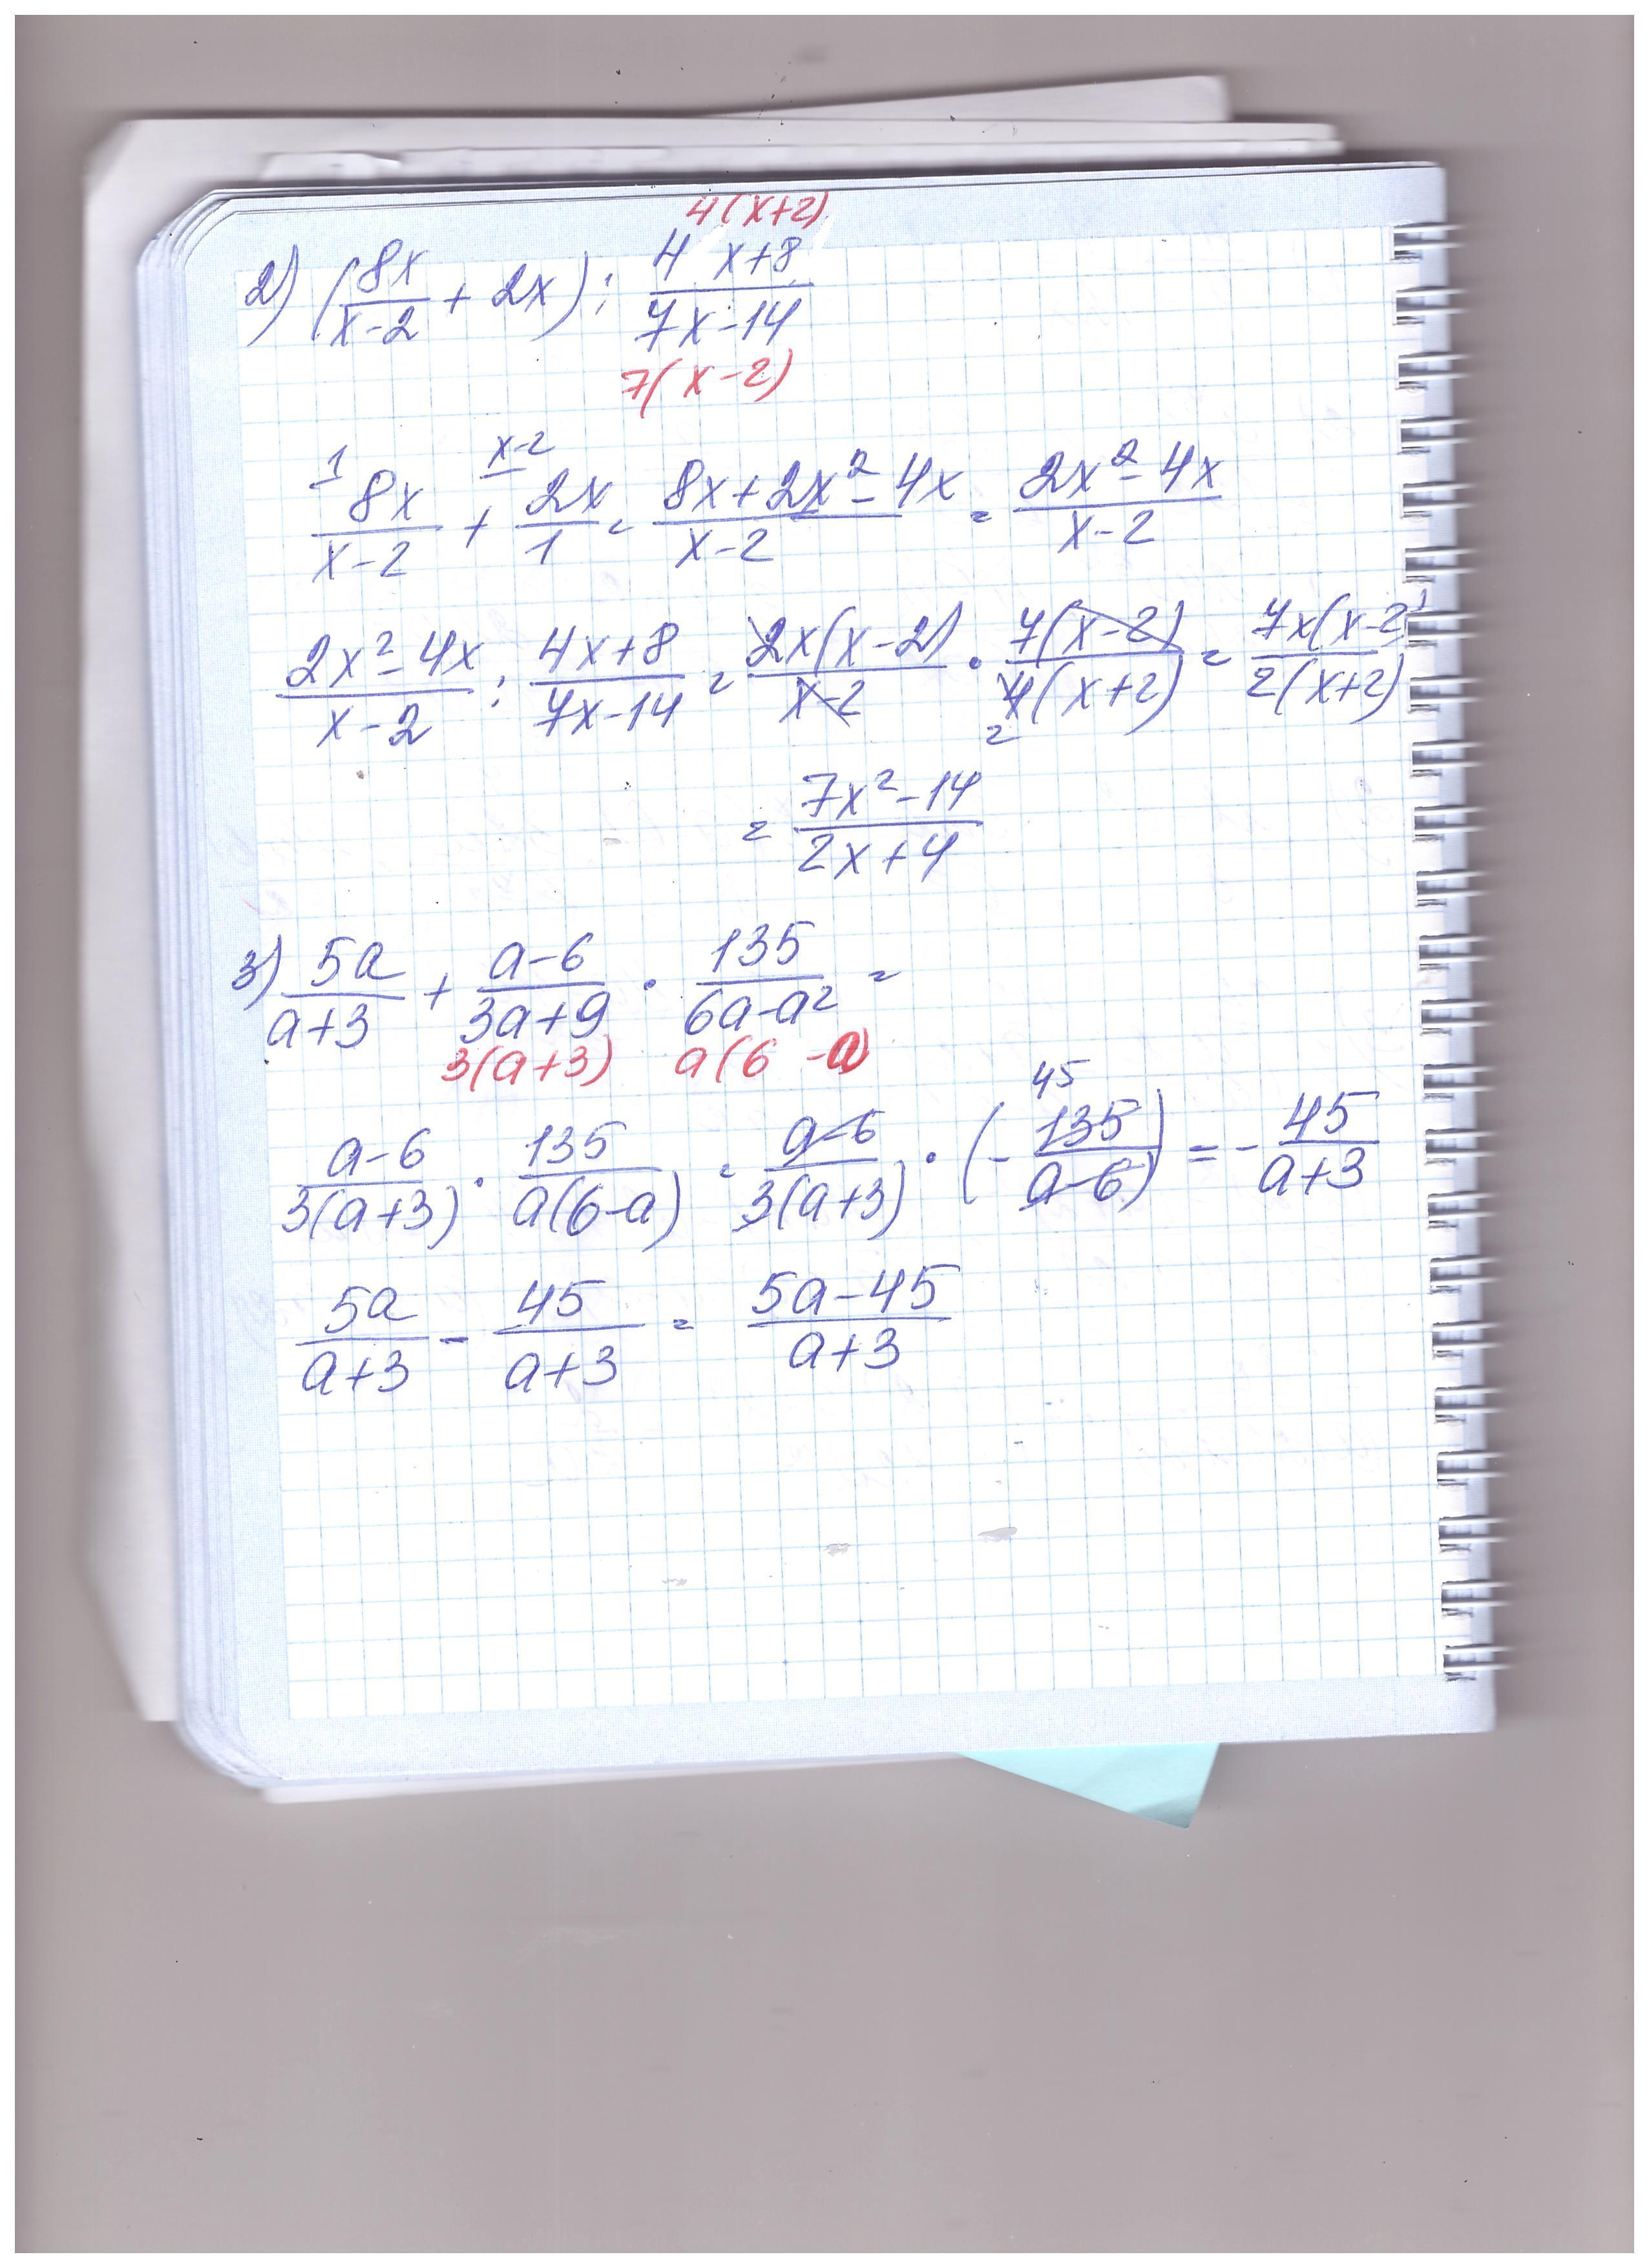 4(x+2)
2) (8x/(x-2) + 2x) : (4 x+8)/(7x-14)
7(x-2)
1 x-2
8x/(x-2) + 2x/1 = (8x+2x²-4x)/(x-2) = (2x²-4x)/(x-2)
(2x²-4x)/(x-2) : (4x+8)/(7x-14) = 2x(x-2)/(x-2) · 7(x-2)/4(x+2) = 7x(x-2)/2(x+2)
2
= (7x²-14)/(2x+4)
3) 5a/(a+3) + (a-6)/(3a+9) · 135/(6a-a²) =
3(a+3) a(6-a)
45
(a-6)/3(a+3) · 135/a(6-a) = (a-6)/3(a+3) · (-135/(a-6)) = -45/(a+3)
5a/(a+3) - 45/(a+3) = (5a-45)/(a+3)